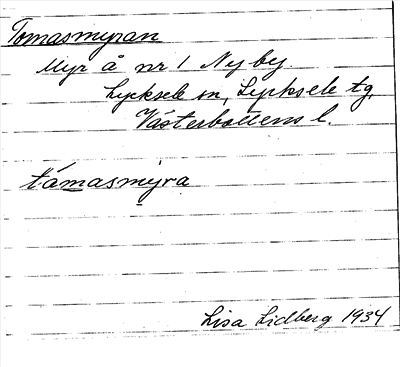 Tomasmyran
Myr å nr 1 Nyby.
Lycksele sn, Lycksele tg,
Västerbottens l.
támasmyra
Lisa Lidberg 1934